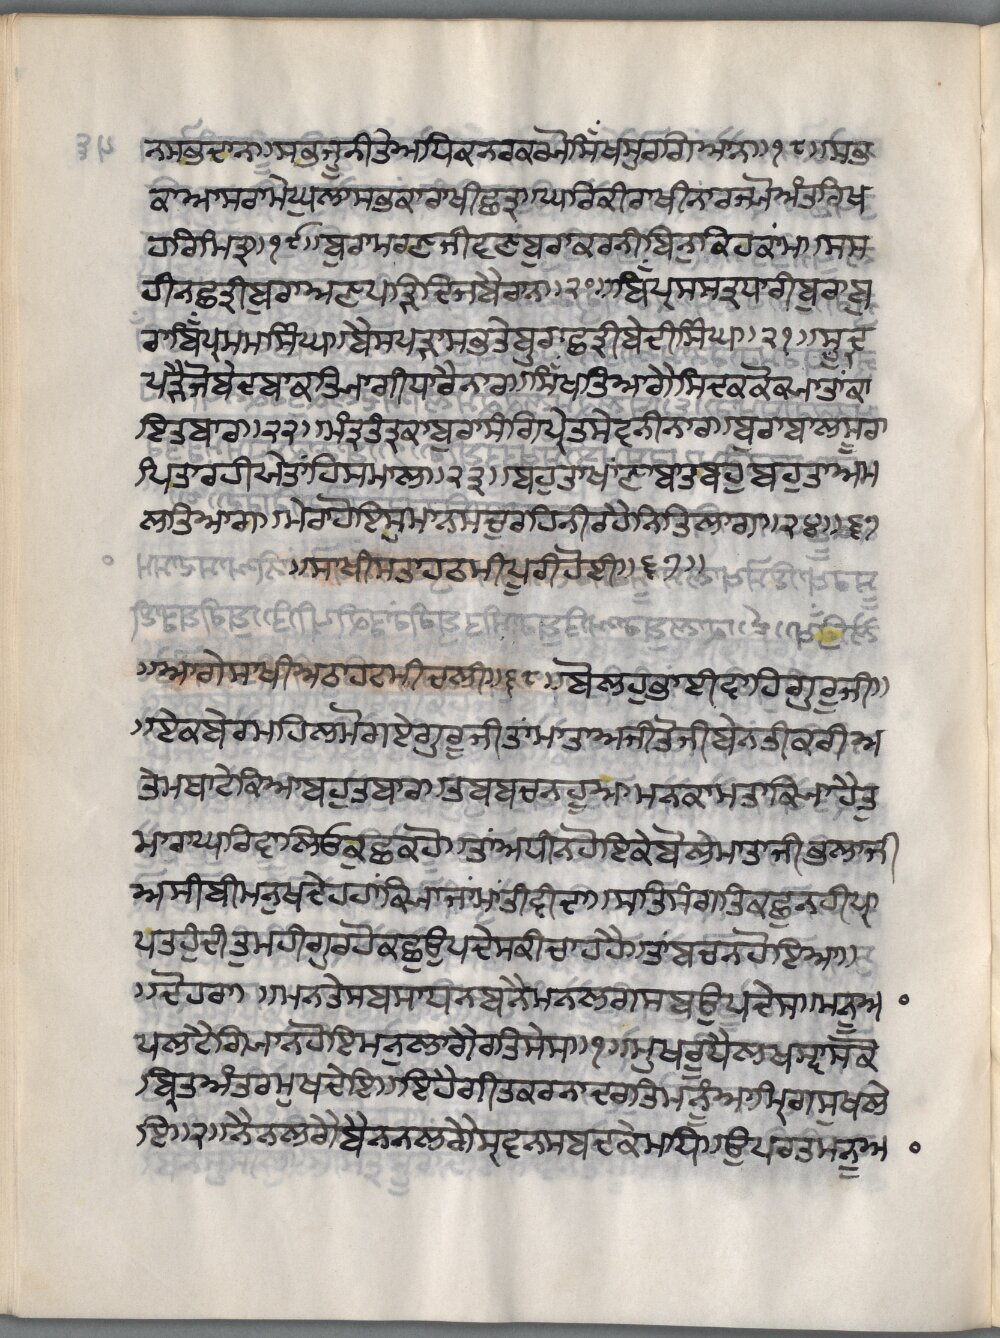 ਨਸਭਦਾਨ॥ਸਭਜੂਨੀਤੇਅਧਿਕਨਰਕਰਮੈਸਿੰਖਸੁਰਗਿਆਨ॥੧੮॥ਸਭ
ਕਾਆਸਰਾਮੇਘੁਲਾਸਭਕਾਰਾਖੀਛਤ੍ਰਾ॥ਘਰਿਕੀਰਾਖੀਨਾਰਜਜੋਅੰਤਰਿਖ
ਹਰਿਮਿਤ੍ਰ॥੧੯॥ਬੁਰਾਮਰਣਜੀਵਣਬੁਰਾਕਰਨੀਬਿਨੁਕਿਹਕਾਮ॥ਸਸ
ਹੀਨਛਤ੍ਰੀਬੁਰਾਅਣਪੜਿਦਿਜਬੈਰਾਨ॥੨੦॥ਬਿੱਪ੍ਰਸਸਤ੍ਰਧਾਰੀਬੁਰਾਬੁ
ਰਾਬਿੱਪ੍ਰਸਮਸਿੰਘ॥ਬੈਸਪੜ੍ਹਾਸਭਤੇਬੁਰਾਛਤ੍ਰੀਬੇਦੀਸਿੰਘ॥੨੧॥ਸੂਦ੍ਰ
ਪੜੈਜੋਬੇਦਬਾਕਤਿਆਗੀਧਾਰੈਨਾਰ॥ਸਿੱਖਤਿਆਗੈਸਿਦਕਕੋਕਿਆਤਾਂਕਾ
ਇਤਬਾਰ॥੨੨॥ਮੰਤ੍ਰਤੰਤ੍ਰਕਾਬੁਰਾਸੰਗਿਪ੍ਰੇਤਸੇਵਨੀਨਾਰ॥ਬੁਰਾਬਾਲਸੂਰਾ
ਪਿਤਾਰਹੀਖੇਤਾਂਹਿਸਮਾਲ॥੨੩॥ਬਹੁਤਾਖਾਂਣਾਬਾਤਬਹੁਬਹੁਤਾਅਮ
ਲਤਿਆਗ॥ਮੇਰਾਹੋਇਸੁਮਾਨਸਦੁਰਹਿਨੀਰਹੈਨਿਤਿਲਾਗ॥੨੪॥੬੭
॥ਸਾਖੀਸਤਾਹਠਮੀਪੂਰੀਹੋਈ॥੬੭॥
॥ਆਗੇਸਾਖੀਅਠਾਹਠਮੀਚਲੀ॥੬੮॥ਬੋਲਹੁਭਾਈਵਾਹਿਗੁਰੂਜੀ॥
॥ਏਕਬੇਰਮਹਿਲਮੋਗਏਗੁਰੂਜੀਤਾਂਮਾਤਾਅਜੀਤੋਜੀਬੇਨਤੀਕਰੀਅ
ਤੇਮਥਾਟੇਕਿਆਬਹੁਤਬਾਰ॥ਤਬਬਚਨਹੂਆਮਨਕਾਮਤਾਕਿਆਹੈਤੁ
ਮਾਰਾਘਰਿਵਾਲਿਓਕੁਛਕਹੋ॥ਤਾਂਅਧੀਨਹੋਇਕੇਬੋਲੇਮਾਤਾਜੀਭਲਾਜੀ
ਅਸੀਬੀਮਨੁਖਦੇਹਹਾਂਕਿਆਜਾਂਮਾਂਤੀਵੀਦਾ॥ਸਾਤਿਸੰਗਤਿਕਛੁਨਹੀਪ੍ਰਾ
ਪਤਹੁੰਦੀਤੁਮਹੀਗੁਰਹੋਕਛੁਉਪਦੇਸਕੀਚਾਹਹੈ॥ਤਾਂਬਚਨਹੋਇਆ॥
॥ਦੋਹਰਾ॥॥ਮਨਤੇਸਬਸਾਧਨਬਨੈਮਨਲਗਿਸਬਉਪਦੇਸ॥ਮਨੂਅ
ਪਲਟੈਗਿਆਨਹੋਇਮਨੁਲਾਗੈਰਤਿਸੇਸ॥੧॥ਸੁਖਰੂਪੈਲਖਸ੍ਵਾਸੱਕ
ਬ੍ਰਿਤਅੰਤਰਮੁਖਦੇਇ॥ਇਹੈਗੀਤਕਰਨਾਦਰਤਿਮਨੂੰਅਮ੍ਰਿਗਸੁਖਲੇ
ਇ॥੨॥ਨੈਨਲਗੈਬੈਨਨਲਗੈਸ੍ਰਵਨਸਬਦਕੇਮਾਧਿ॥ਉਪਰਤਮਨੂਅ